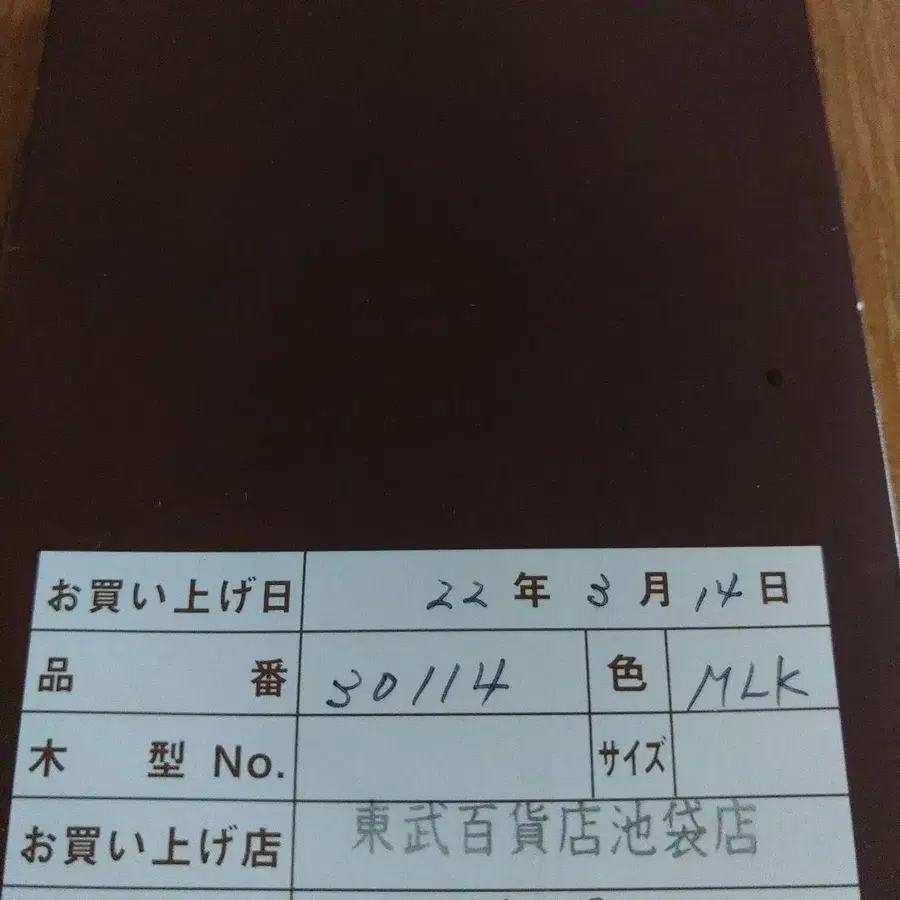 お買い上げ日 22年3月14日
品番 30114 色 MLK
木型No. サイズ
お買い上げ店 東武百貨店池袋店